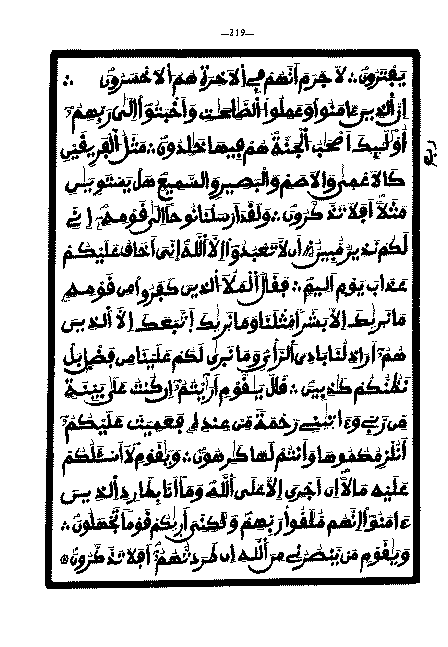 —219—
يفترون ∴ لا جرم أنهم في الاخرة هم الاخسرون ∴
إن الذين ءامنوا وعملوا الصلحت وأخبتوا إلى ربهم
أوليك أصحب الجنة هم فيها خلدون ∴ مثل الفريقين
ربع
كالاعمى والاصم والبصير والسميع هل يستوين
مثلا أفلا تذكرون ∴ ولقد أرسلنا نوحا إلى قومه إني
لكم نذير مبين ∴ أن لا تعبدوا إلا الله إني أخاف عليكم
عذاب يوم أليم ∴ فقال الملأ الذين كفروا من قومه
ما نريك إلا بشرا مثلنا وما نريك اتبعك إلا الذين
هم أراذلنا بادي الرأي وما نرى لكم علينا من فضل بل
نظنكم كذبين ∴ قال يقوم أريتم إن كنت على بينة
من ربي وءاتيني رحمة من عنده فعميت عليكم
أنلزمكموها وأنتم لها كرهون ∴ ويقوم لا أسئلكم
عليه مالا إن أجري إلا على الله وما أنا بطارد الذين
ءامنوا إنهم ملقوا ربهم ولكني أريكم قوما تجهلون ∴
ويقوم من ينصرني من الله إن طردتهم أفلا تذكرون